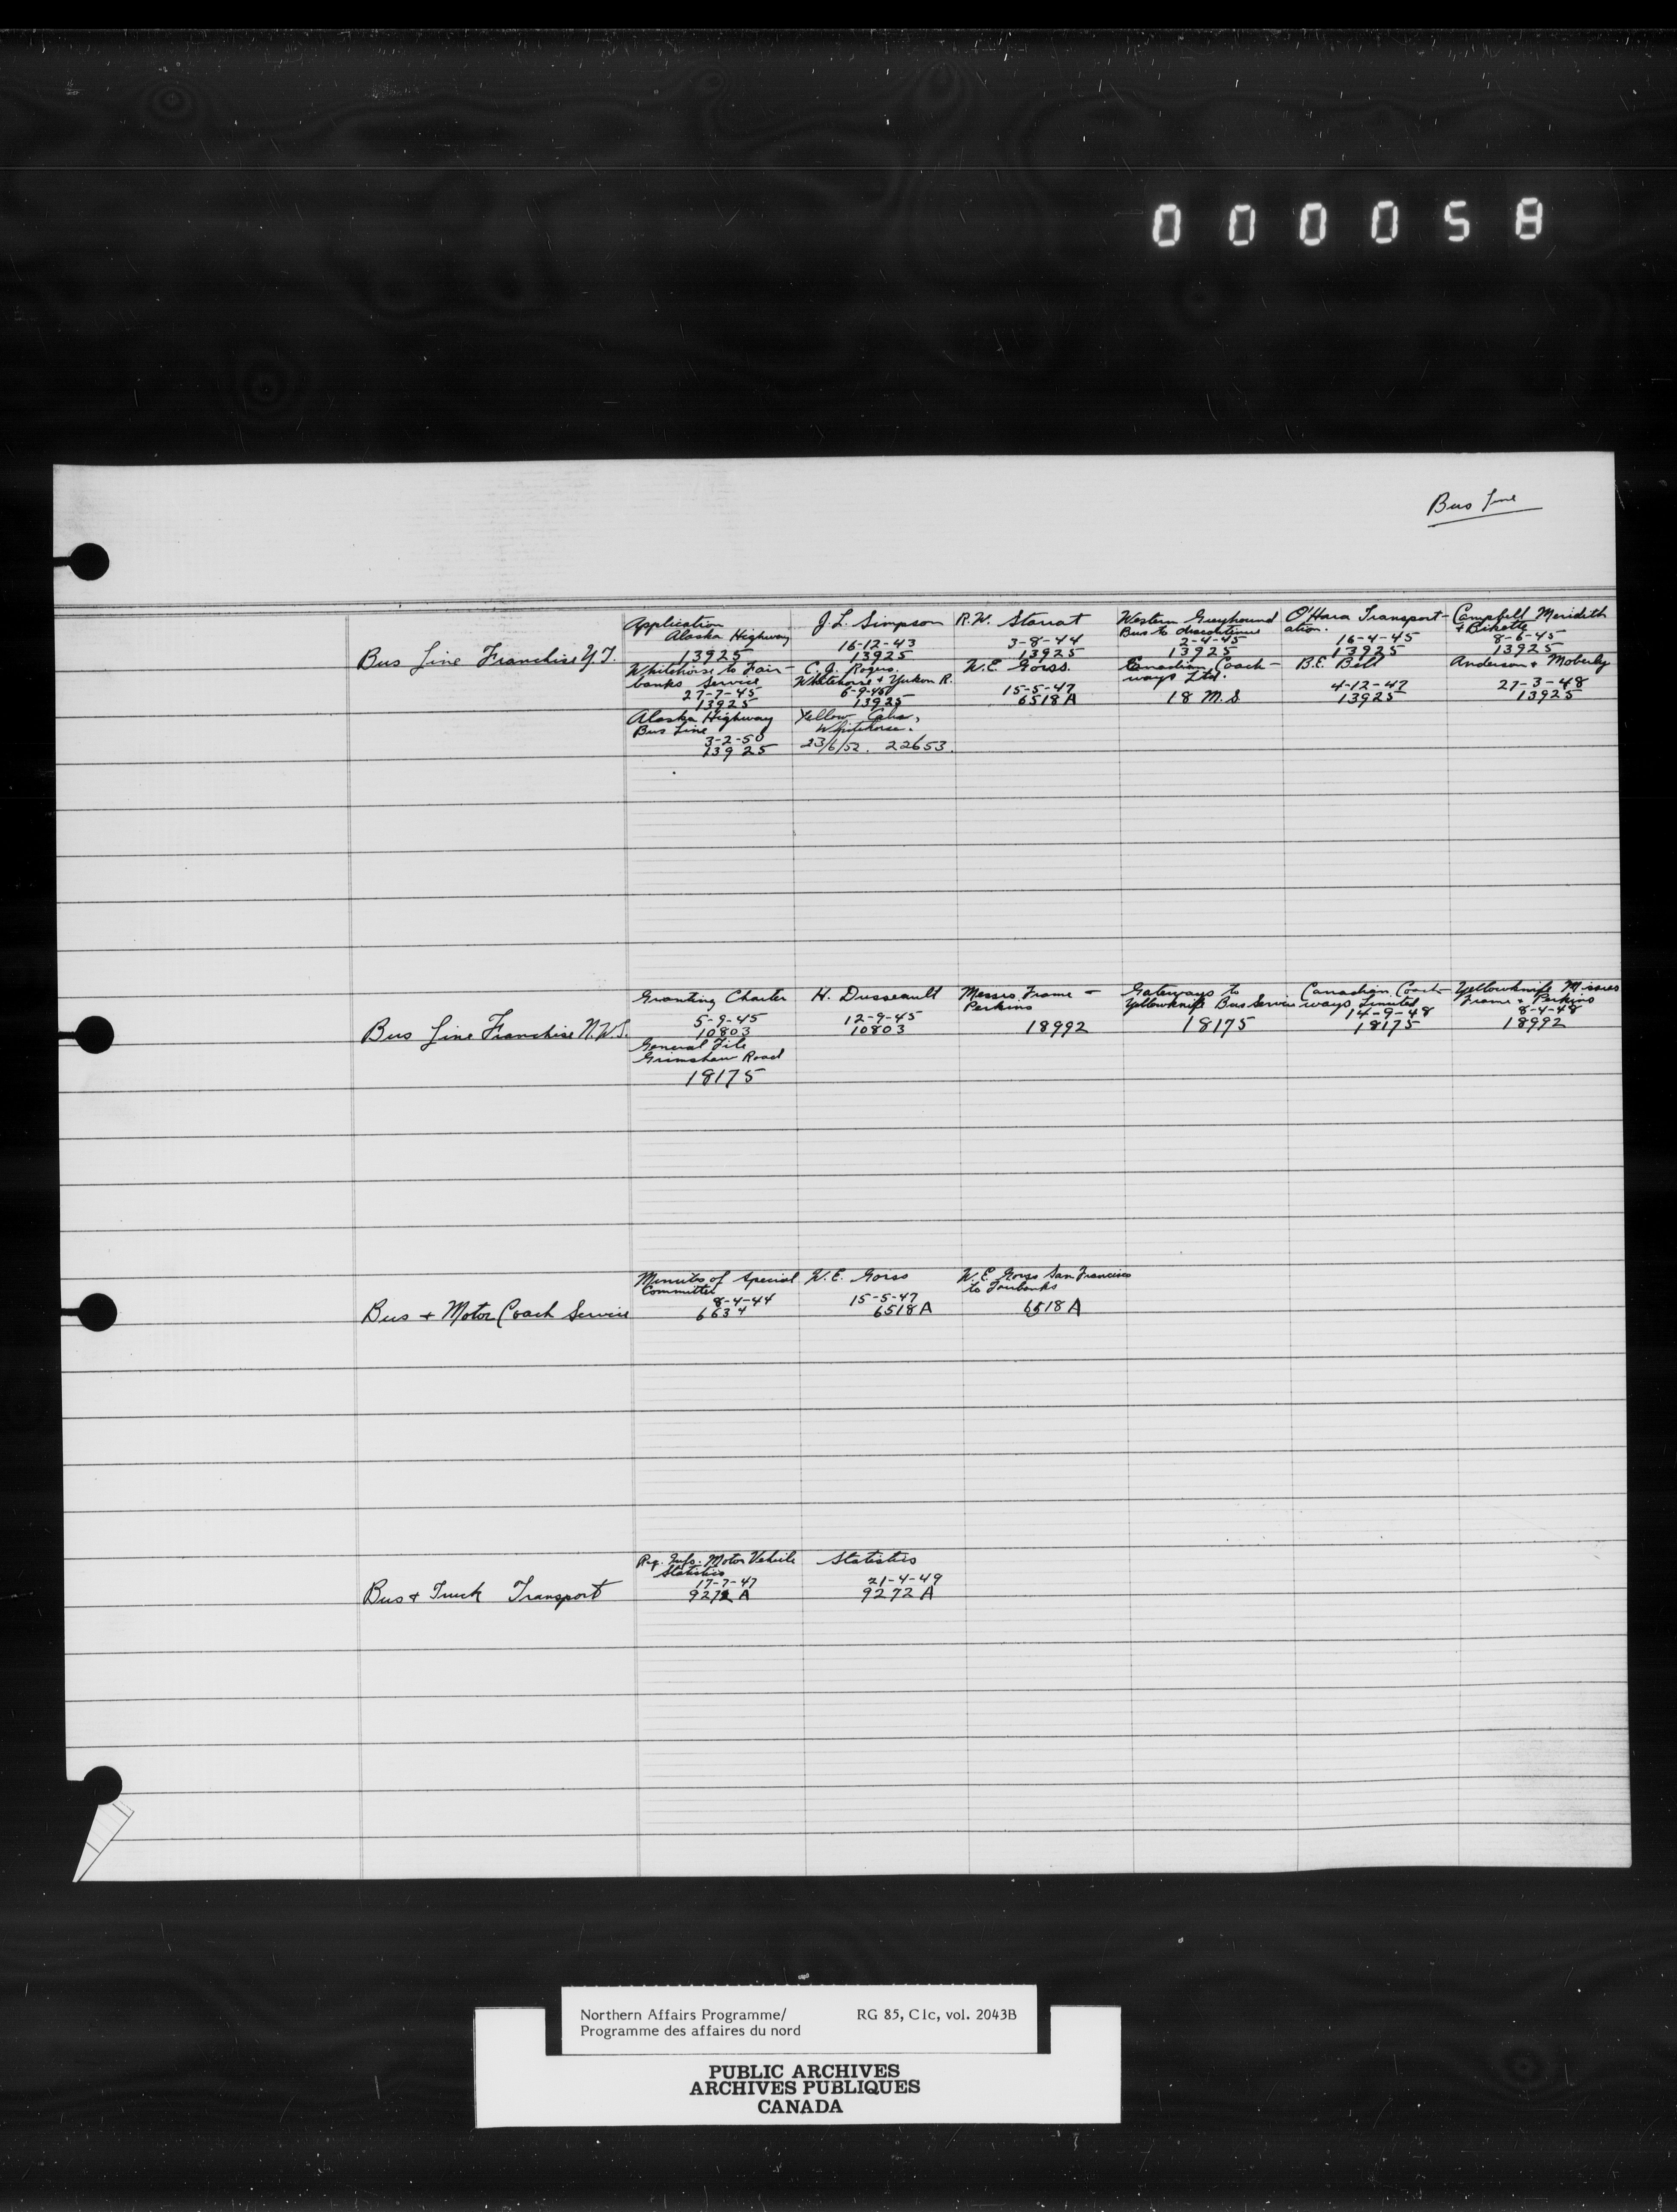 000058
Bus Line
Bus Line Franchise Y.T.
Application
Alaska Highway
13925
J.L. Simpson
16-12-43
13925
R.W. Starrat
3-8-44
13925
Western Greyhound
Bus to discontinue
2-4-45
13925
O'Hara Transport-
ation.
16-4-45
13925
Campbell Meridith
+ Bikette
8-6-45
13925
Whitehorse to Fair-
banks Service
27-7-45
13925
C.J. Rogers.
Whitehorse + Yukon R.
6-9-45
13925
W.E. Goiss.
15-5-47
6518A
Canadian Coach-
ways Ltd.
18 M.S
B.E. Bell
4-12-47
13925
Anderson + Moberly
27-3-48
13925
Alaska Highway
Bus Line
3-2-50
13925
Yellow Cabs,
Whitehorse.
23/6/52. 22653.
Bus Line Franchise N.W.T.
Granting Charter
5-9-45
10803
H. Dusseault
12-9-45
10803
Messrs Frame -
Perkins
18992
Gateways to
Yellowknife Bus Service
18175
Canadian Coach-
ways Limited
14-9-48
18175
Yellowknife Messrs
Frame + Perkins
8-4-48
18992
General File
Grimshaw Road
18175
Bus + Motor Coach Service
Minutes of Special
Committee
8-4-44
6634
W.E. Goiss
15-5-47
6518A
W.E. Goiss San Francisco
to Fairbanks
6518A
Bus + Truck Transport
Req. Info. Motor Vehicle
Statistics
17-7-47
9272 A
Statistics
21-4-49
9272 A
Northern Affairs Programme/ RG 85, C1c, vol. 2043B
Programme des affaires du nord
PUBLIC ARCHIVES
ARCHIVES PUBLIQUES
CANADA